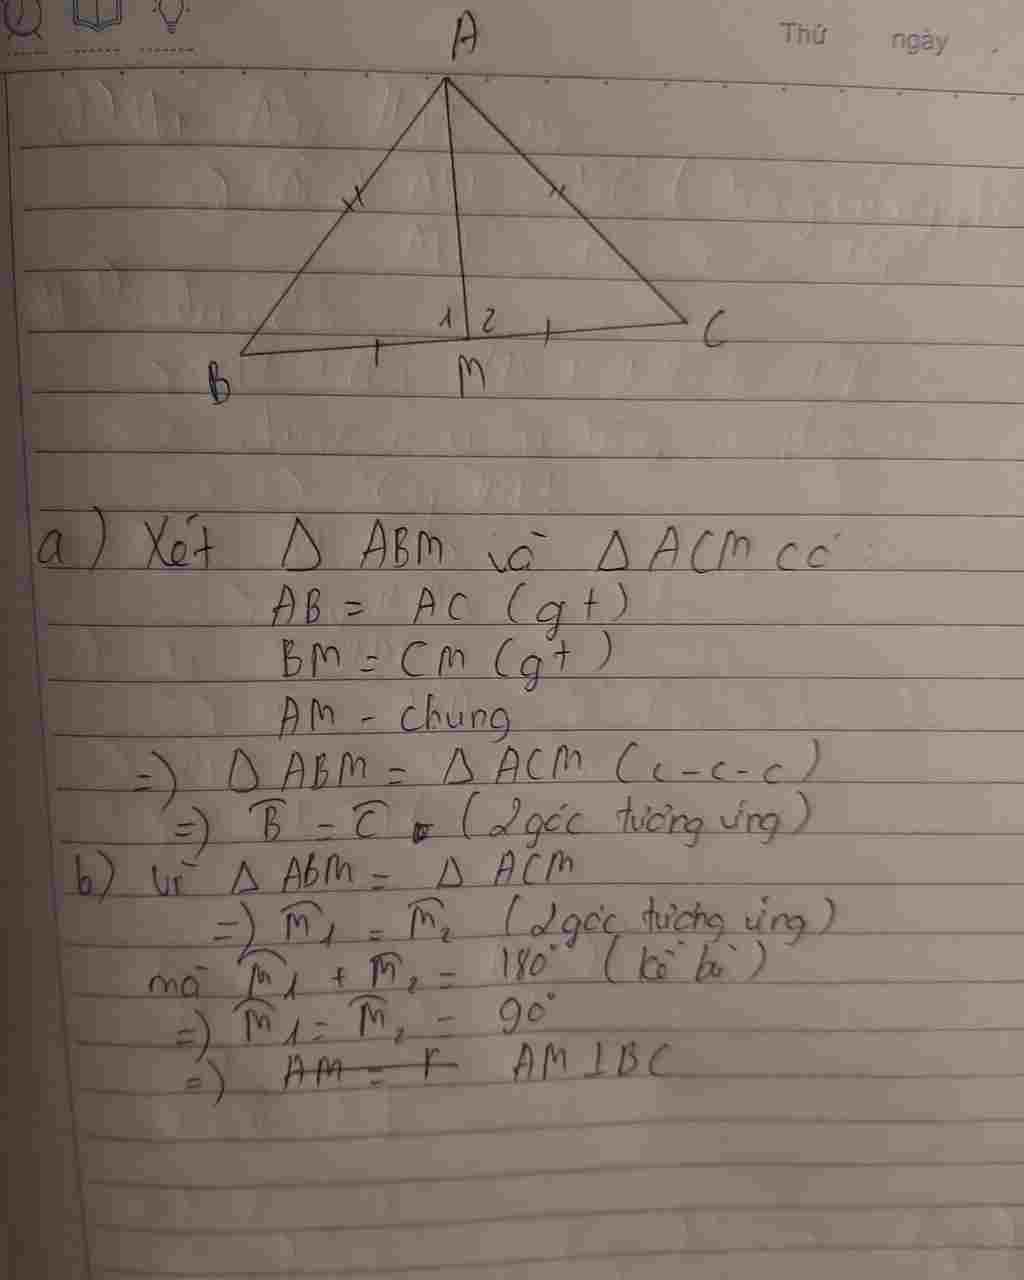 Thứ ngày
A
1 2
B M C
a) Xét Δ ABM và Δ ACM có
AB = AC (gt)
BM = CM (gt)
AM - chung
=) Δ ABM = Δ ACM (c-c-c)
=) B̂ = Ĉ (2 góc tương ứng)
b) Vì Δ ABM = Δ ACM
=) M̂1 = M̂2 (2 góc tương ứng)
mà M̂1 + M̂2 = 180° (kề bù)
=) M̂1 = M̂2 = 90°
=) AM = AM ⊥ BC